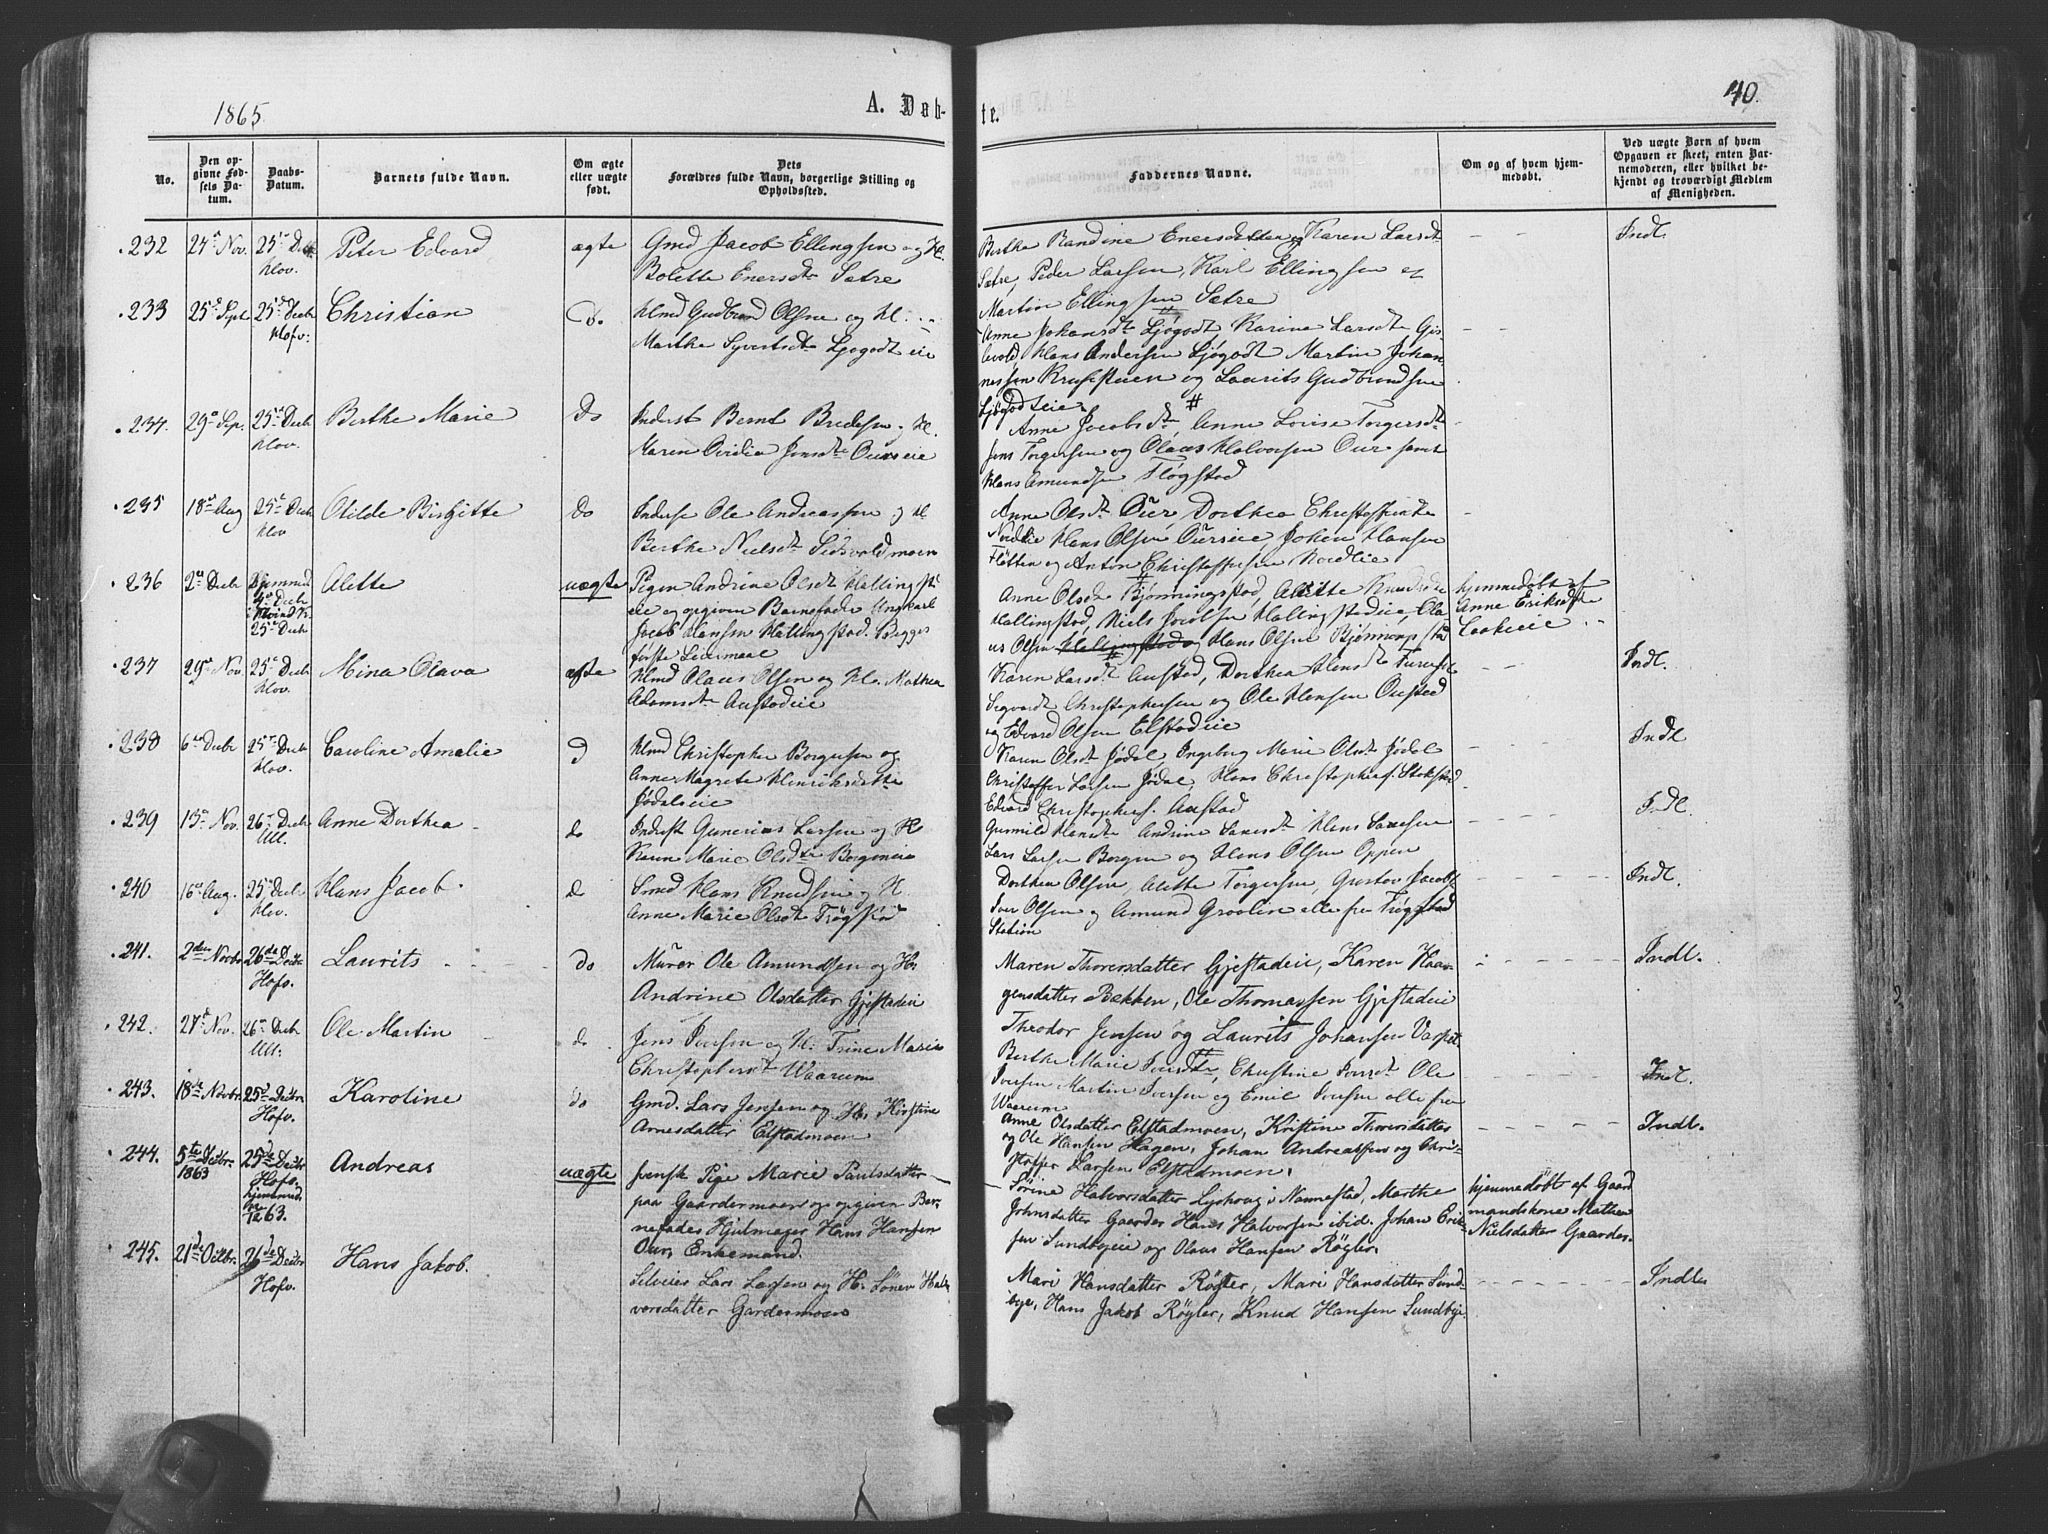 1865.
A. Døb-
te.
40.
No.
Den op-
givne Fød-
sels Da-
tum.
Daabs-
Datum.
Barnets fulde Navn.
Om ægte
eller uægte
født.
Dets
Forældres fulde Navn, borgerlige Stilling og
Opholdssted.
Faddernes Navne.
Om og af hvem hjem-
medøbt.
Ved uægte Børn af hvem
Opgaven er skeet, enten Bar-
nemoderen, eller hvilket be-
kjendt og troværdigt Medlem
af Menigheden.
232 24 Nov. 25 Decb Peter Edvard ægte Gmd Jacob Ellingsen og H.
Hov. Bolette Enersdtr Sætre
Berthe Randine Enersdatter og Karen Larsdt
Sætre, Peder Larsen, Karl Ellingsen og
Martin Ellingsen Sætre
Indl.
233 25 Sept 25 Decb Christian Do. Hmd Gudbrand Olsen og H.
Hofv: Marthe Syvertsdt Ljøgodteie
Anne Johansdt Ljøgodt Karine Larsdt Gis-
levold Hans Andersen Ljøgodt Martin Johan-
nessen Krusestuen og Laurits Gudbrandsen
Ljøgodteie
234. 29 Sep. 25 Decb Berthe Marie Do Inderst Bernt Bredesen og H.
Hov. Maren Jensdt Ourseie
Anne Jacobsdt, Anne Lovise Torgersdt
Jens Torgersen og Olaus Halvorsen Our samt
Hans Amundsen Fløgstad
235 18 Aug 25 Decb Otilde Birgitte Do Inderst Ole Andreassen og H
Hov Berthe Nielsdt Eidsvoldmoen
Anne Olsdt Ouer Dorthea Christoffersdt
Nordlie Hans Olsen Ourseie, Johan Hansen
Fløtten og Anton Christoffersen Nordlie
236 2 Decb Hjemmed Alette uægte Pigen Andrine Olsdt Hallingsta
4 Decb
25 Decb
eie og opgiven Barnefader Ungkarl
Jacob Hansen Hallingstad. Begges
første Leiermaal
Anne Olsdt Bjønningstad, Alette Knudsdt
Hallingstad, Niels Jacobsen Hallingstadeie, Ola-
us Olsen Hallingstad og Hans Olsen
hjemmedøbt af
Anne Eriksdtr
237 29 Nov. 25 Decb Mina Olava ægte Hmd Olaus Olsen og H. Mathea
Hov. Adamsdt Austadeie
Karen Larsdt Austad, Dorthea Hansdt
Segvardt Christophersen og Ole Hansen Oustad
og Edvard Olsen Elstadeie
Indl.
238 6 Decb 25 Decb Caroline Amalie D Hmd Christopher Borgersen og
Hov. Anne Magrete Henriksdatter
Jødalseie
Karen Olsdt Jødal, Ingeborg Marie Olsdt Jødal
Christoffer Larsen Jødal, Hans Christophers.
Edvard Christophers. Austad
Indl
239 13 Nov. 26 Decb Anne Dorthea do Inderst Gunerius Larsen og H
Ull. Karen Marie Olsdtr
Gunnild Hansdt Andrine Hans
Lars Larsen Borgen og Hans Olsen Oppen
Indl.
240 16 Aug. 25 Decb Hans Jacob. d Smed Hans Knudsen og H.
Hov. Anne Marie Olsdt Trøgstad
Dorthea Olsen, Alette Torgersen, Gustav Jacobs.
Iver Olsen og Amund alle fra Trøgstad
Station
Indl.
241. 2den Novbr 26de Decbr Laurits do Murer Ole Amundsen og H.
Hofv. Andrine Olsdatter Gjestadeie
Maren Thorersdatter Gjestadeie, Karen Haa-
gensdatter Bekken, Ole Thomassen Gjestadeie
Theodor Jensen og Laurits Johansen
Indl.
242. 27 Nov. 26 Decb Ole Martin do Jens Iversen og H. Trine Marie
Ull. Christophersdt Waarum
Berthe Marie Iversdtr, Christine Iversdt Ole
Iversen Martin Iversen og Emil Iversen alle fra
Waarum
Indl.
243. 18de Novbr. 25de Decbr Karoline do Gmd. Lars Jensen og H. Kirstine
Hofv. Arnesdatter Elstadmoen
Anne Olsdatter Elstadmoen, Kristine Thorersdatter
og Ole Hansen Hagen, Johan Andreassen og Chri-
stoffer Larsen Elstadmoen.
Indl.
244. 5te Decbr. 25de Decbr Andreas uægte svensk Pige Marie Paulsdatter
1863 Hofv.
hjemmed.
63.
paa Gardermoen og opgiven Bar-
nefader Hjulmager Hans Hansen
Our, Enkemand.
Sørine Halvorsdatter i Nannestad, Marthe
Johnsdatter Gaarder Hans Halvorsen ibid. Johan Erik-
sen Sundbyeie og Olaus Hansen Røgler.
hjemmedøbt af Gaard
mandskone Mathea
Nielsdatter Gaarder.
245. 21de Octbr. 26de Decbr Hans Jakob. Selveier Lars Larsen og H. Søren Hal-
Hofv. vorsdatter Gardermoen
Mari Hansdatter Røgler, Mari Hansdatter Sund-
bye, Hans Jakob Røgler, Knud Hansen Sundbye.
Indl.